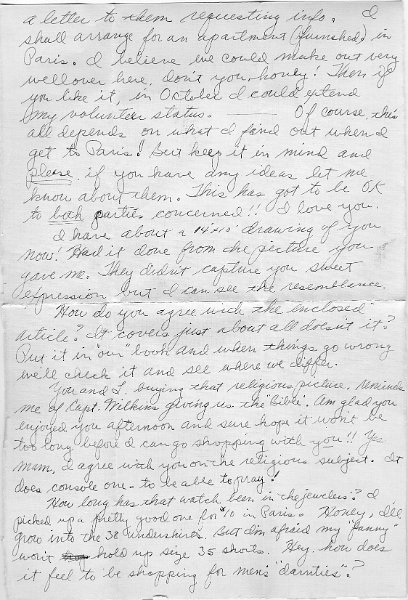 a letter to them requesting info. I
shall arrange for an apartment (furnished) in
Paris. I believe we could make out very
well over here, don't you, honey? Then if
you like it, in October I could extend
my volunteer status. —— Of course, this
all depends on what I find out when I
get to Paris! But keep it in mind and
please if you have any ideas let me
know about them. This has got to be OK
to both parties concerned!! I love you.
I have about a 14x10 drawing of you
now! Had it done from the picture you
gave me. They didn't capture you sweet
expression but I can see the resemblance.
How do you agree with the enclosed
article? It covers just about all doesn't it?
Put it in "our" book and when things go wrong
we'll check it and see where we differ.
You and I buying that religious picture, reminded
me of Capt. Wilkins giving us the "Bible". Am glad you
enjoyed you afternoon and sure hope it won't be
too long before I can go shopping with you!! Yes
mum, I agree with you on the religious subject. It
does console one - to be able to pray!
How long has that watch been in the jewelers? I
picked up a pretty good one for $10 in Paris. Honey, I'll
grow into the 38 undershirts. But I'm afraid my "fanny"
won't hold up size 35 shorts. Hey how does
it feel to be shopping for men's "dainties"?